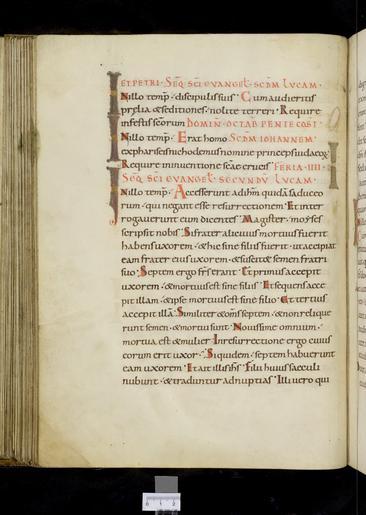 ET PETRI. SEQ SCI EVANGEL. SCDM LUCAM.
IN illo temp. discipulis suis. Cum audieritis
prelia & seditiones. nolite terreri. Require
in festis scorum DOMIN. OCTAB PENTECOST.
IN illo temp. Erat homo SCDM IOHANNEM
ex pharisęis nichodemus nomine princeps iudęoꝝ
Require in inuentione scae crucis FERIA IIII
SEQ SCI EVANGEL. SECUNDU LUCAM.
IN illo temp. Accesserunt ad ihm quidā saduceo
rum. qui negant esse resurrectionem. Et inter
rogauerunt eum dicentes. Magister. moyses
scripsit nobis. Si frater alicuius mortuus fuerit
habens uxorem. & hic sine filiis fuerit. ut accipiat
eam frater eius uxorem. & suscit& semen fratri
suo. Septem ergo frs erant. Et primus accepit
uxorem. & mortuus est sine filiis. Et sequens acce
pit illam. & ipse mortuus est sine filio. Et tertius
accepit illā. Similiter & oms septem. & non relique
runt semen. & mortui sunt. Nouissime omnium.
mortua est & mulier. In resurrectione ergo cuius
eorum erit uxor. Siquidem septem habuerunt
eam uxorem. Et ait illis ihs. Filii huius saeculi
nubunt. & traduntur ad nuptias. Illi uero qui